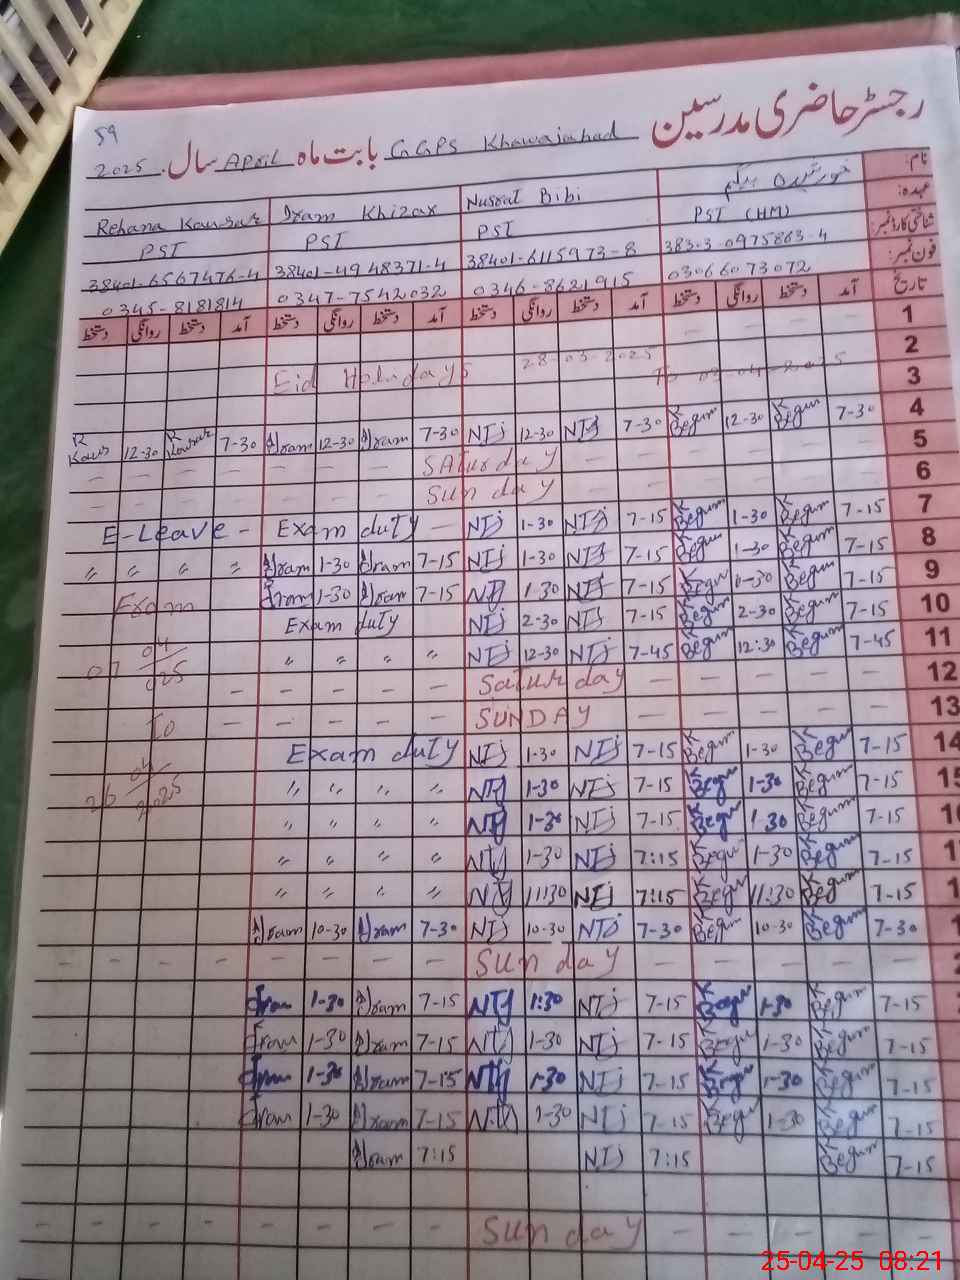 رجسٹر حاضری مدرسین
59
GGPS Khawajabad بابت ماہ April سال 2025
نام: خورشید بیگم Nusrat Bibi Iram Khizar Rehana Kausar
عہدہ: PST (HM) PST PST PST
شناختی کارڈ نمبر: 38401-6115973-8 38401-4948371-4 38401-6567476-4
فون نمبر: 03066073072 0346-8621915 0347-7542032 0345-8181814
تاریخ آمد دستخط روانگی دستخط آمد دستخط روانگی دستخط آمد دستخط روانگی دستخط آمد دستخط روانگی دستخط
1
2
Eid Holidays 28-03-2025 To 03-04-2025
3
K Kaus 12-30 K Kausar 7-30 Iram 12-30 Iram 7-30 NTj 12-30 NTj 7-30 K Begum 12-30 K Begum 7-30 4
- - - - - - - SATurday - - - - - 5
- - - - - - - Sunday - - - - - 6
E-Leave - Exam duty - NTj 1-30 NTj 7-15 K Begum 1-30 K Begum 7-15 7
〃 〃 〃 〃 Iram 1-30 Iram 7-15 NTj 1-30 NTj 7-15 K Begum 1-30 K Begum 7-15 8
Exam Iram 1-30 Iram 7-15 NTj 1-30 NTj 7-15 K Begum 1-30 K Begum 7-15 9
Exam duty NTj 2-30 NTj 7-15 K Begum 2-30 K Begum 7-15 10
07 04 025 〃 〃 〃 〃 NTj 12-30 NTj 7-45 K Begum 12:30 K Begum 7-45 11
- - - - - Saturday - - - - - 12
To - - - - - SUNDAY - - - - - 13
Exam duty NTj 1-30 NTj 7-15 K Begum 1-30 K Begum 7-15 14
26 04 2025 〃 〃 〃 〃 NTj 1-30 NTj 7-15 K Begum 1-30 K Begum 7-15 15
〃 〃 〃 〃 NTj 1-30 NTj 7-15 K Begum 1-30 K Begum 7-15
〃 〃 〃 〃 NTj 1-30 NTj 7:15 K Begum 1-30 K Begum 7-15
〃 〃 〃 〃 NTj 11:30 NTj 7:15 K Begum 11:30 K Begum 7-15
Iram 10-30 Iram 7-30 NTj 10-30 NTj 7-30 K Begum 10-30 K Begum 7-30
- - - - - - - - Sunday - - - - -
Iram 1-30 Iram 7-15 NTj 1:30 NTj 7-15 K Begum 1-30 K Begum 7-15
Iram 1-30 Iram 7-15 NTj 1-30 NTj 7-15 K Begum 1-30 K Begum 7-15
Iram 1-30 Iram 7-15 NTj 1-30 NTj 7-15 K Begum 1-30 K Begum 7-15
Iram 1-30 Iram 7-15 NTj 1-30 NTj 7-15 K Begum 1-30 K Begum 7-15
Iram 7:15 NTj 7:15 K Begum 7-15
- - - - - - - - Sunday - - - - -
25-04-25 08:21